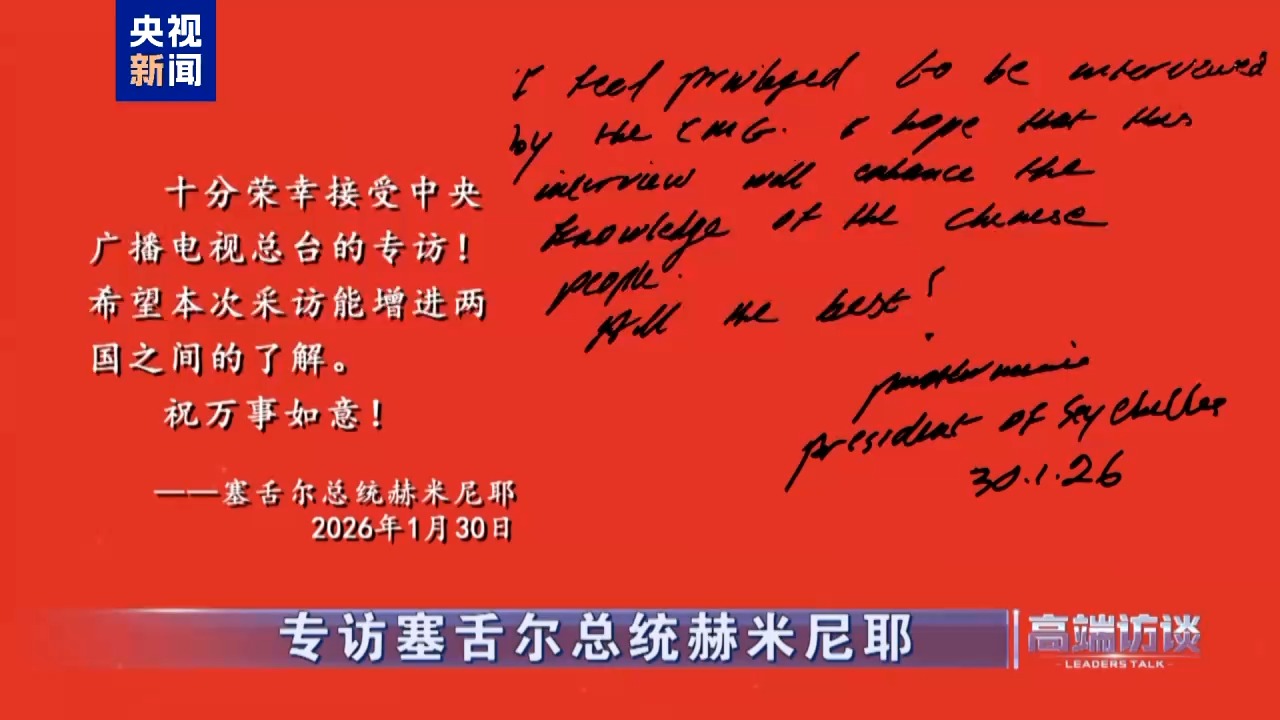 央视
新闻
I feel privileged to be interviewed
by the CMG. I hope that this
interview will enhance the
knowledge of the Chinese
people.
All the best!
President of Seychelles
30.1.26
十分荣幸接受中央
广播电视总台的专访！
希望本次采访能增进两
国之间的了解。
祝万事如意！
——塞舌尔总统赫米尼耶
2026年1月30日
专访塞舌尔总统赫米尼耶
高端访谈
LEADERS TALK